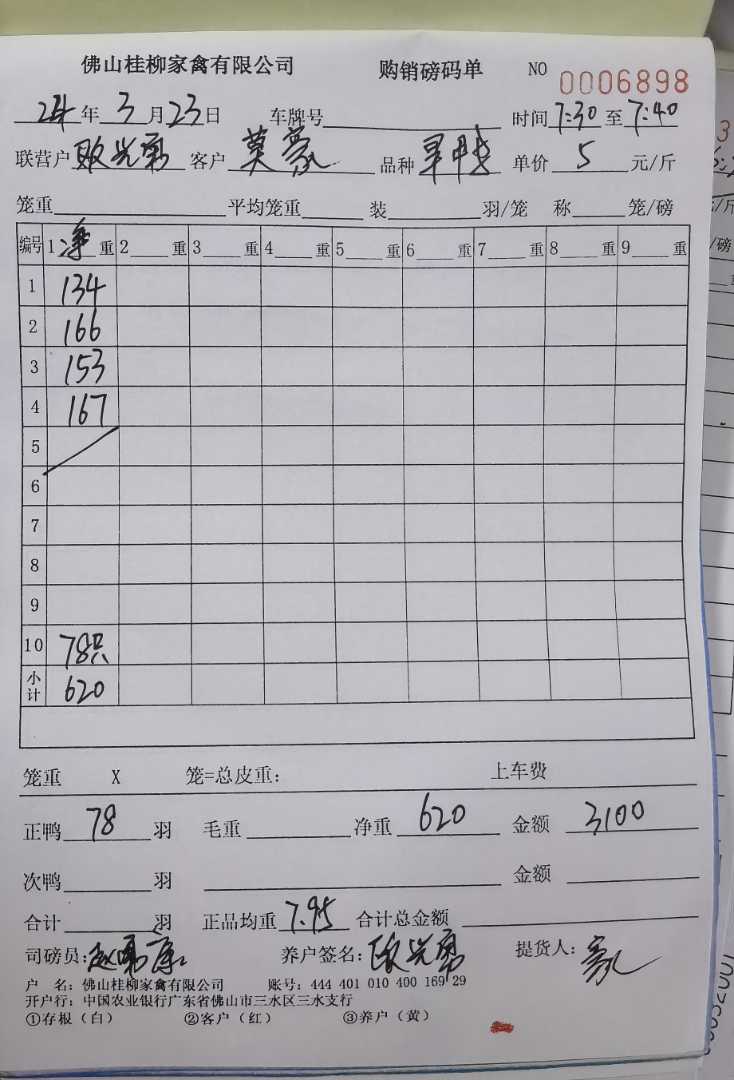 佛山桂柳家禽有限公司 购销磅码单 NO 0006898
24年3月23日 车牌号 时间7:30至7:40
联营户 客户 莫豪 品种 单价 5 元/斤
笼重 平均笼重 装 羽/笼 称 笼/磅
编号 1净重 2 重 3 重 4 重 5 重 6 重 7 重 8 重 9 重
1 134
2 166
3 153
4 167
5
6
7
8
9
10 78只
小计 620
笼重 X 笼=总皮重: 上车费
正鸭 78 羽 毛重 净重 620 金额 3100
次鸭 羽 金额
合计 羽 正品均重 7.95 合计总金额
司磅员: 养户签名: 提货人: 豪
户 名: 佛山桂柳家禽有限公司 账号: 444 401 010 400 169 29
开户行: 中国农业银行广东省佛山市三水区三水支行
①存根(白) ②客户(红) ③养户(黄)